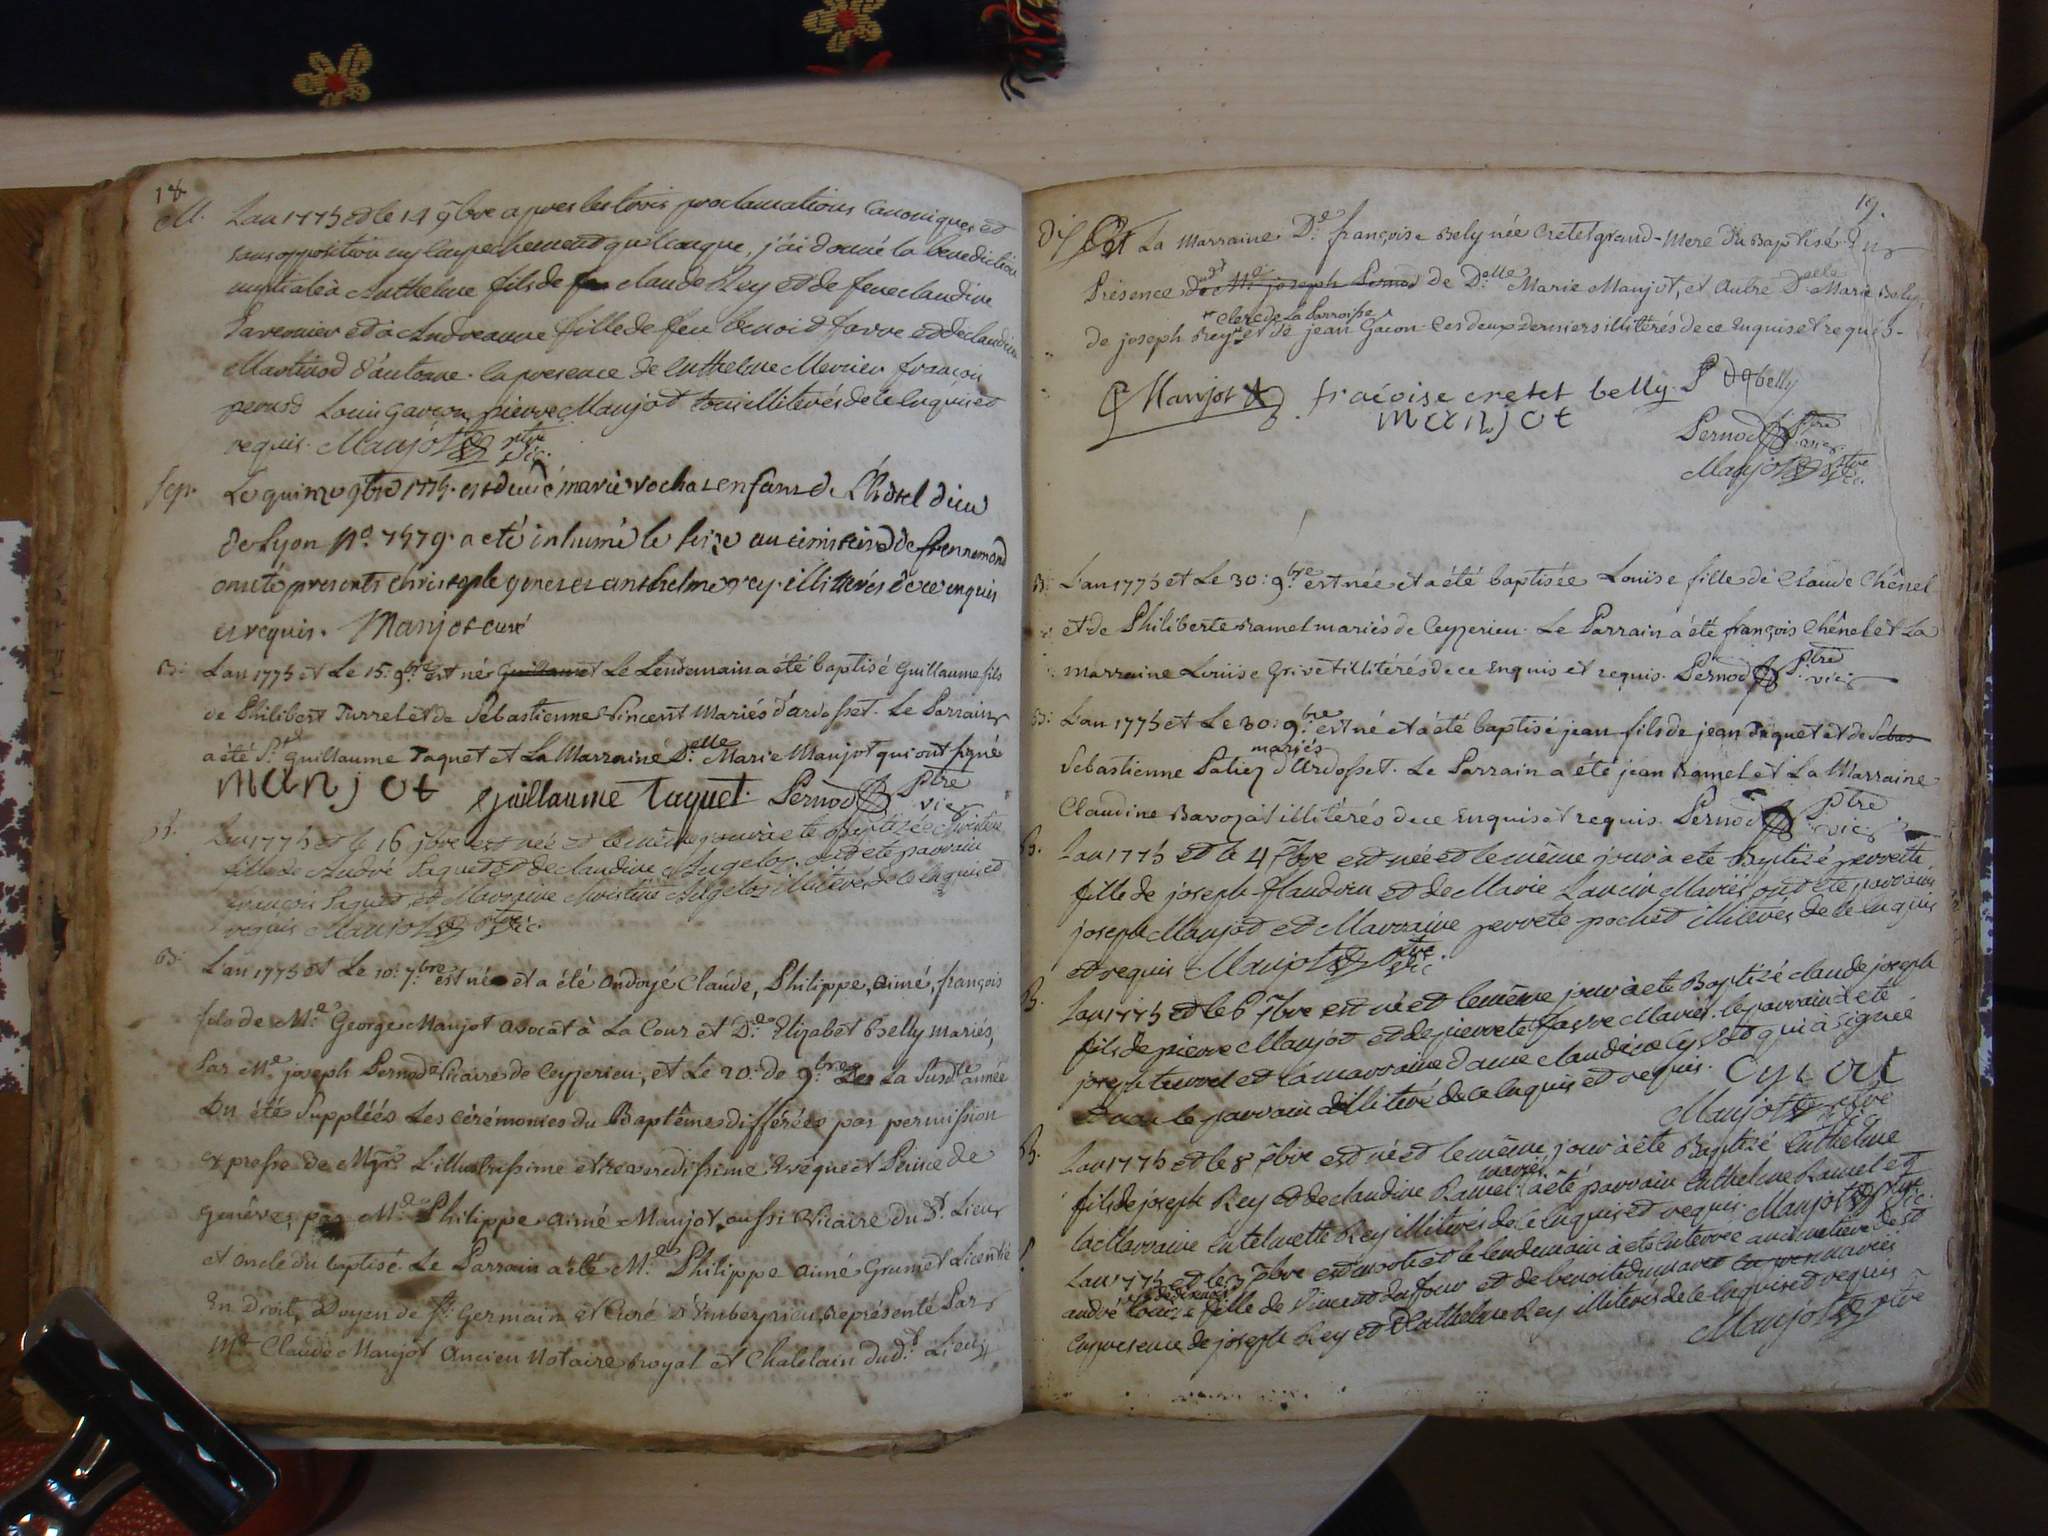 18
M. Lan 1775 et le 14 9bre apres les trois proclamations canoniques et
sans opposition ny Empechement quelconque, j'ai donné la benediction
nuptiale à Anthelme fils de claude Rey et de feue claudine
Tavernier et à Andreanne fille de feu benoit favre et de claudine
Martinod d'autonne. en presence de Enthelme Mercier françois
Louis Garçon pierre Manjot tous illiterés de ce Enquis et
requis. Manjot ptre vic.
Sep. Le quinze 9bre 1775. est decedé marie rochas enfant de L'hotel dieu
de Lyon No. 7579. a eté inhumé le seize au cimitiere de
ont été presents christople genes et anthelme rey. illiterés de ce enquis
et requis. Manjot curé
B: L'an 1775 et Le 15: 9bre Est né Guillaume et Le Lendemain a été baptisé Guillaume fils
de Philibert Turrel et de Sébastienne Vincent Mariés d'ardosset. Le Parrain
a été Sr. Guillaume Taquet et La Marraine Delle Marie Manjot qui ont signé
manjot guillaume taquet. Pernod ptre vic
B. Lan 1775 et le 16 9bre est née et le même jour à eté Baptizée Christine
fille de André Paquet et de claudine Angeloz. ont eté parrain
françois Paquet et Marraine Christine Angeloz illiterés de ce Enquis et
requis Manjot ptre vic.
B: L'an 1775 et Le 10: 7bre est né et a été ondoyé Claude, Philippe, aimé, françois
fils de Me. George Manjot avocat à La Cour et De. Elizabet Belly mariés,
Par Me. joseph Pernod Vicaire de Ceyzerieu, et Le 20: de 9bre De La Susd. année
On été Suppléés Les cérémonies du Baptême différées par permission
expresse de Mgr. L'illustrissime et reverendissime Evêque et Prince de
genêve, par Mre. Philippe aimé Manjot aussi Vicaire du d. Lieu
et oncle du baptisé. Le Parrain a été Me. Philippe aimé Grumet Licentié
En Droit, Doyen de St. Germain et Curé d'Ambeyrieu, représenté Par
Me. Claude Manjot Ancien Notaire royal et Chatelain du d. Lieu,
19.
Et La Marraine De. françoise Bely née Cretet grand-Mere du Baptisé En
Présence de Me joseph Pernod de Delle Marie Manjot, et Autre Delle Marie Bely,
Clerc de La Parroisse
de joseph Rey et de jean Gacon Ces deux derniers illitérés de ce Enquis et requis.
Manjot fraçoise cretet belly. P belly
manjot
Pernod ptre vic
Manjot ptre vic.
B: L'an 1775 et Le 30: 9bre est née et a été baptisée Louise fille de Claude Chênel
et de Philiberte Ramel mariés de Ceyzerieu. Le Parrain a été françois Chênel et La
marraine Louise Grivet illitérés de ce Enquis et requis. Pernod ptre vic
B: L'an 1775 et Le 30: 9bre est né et a été baptisé jean fils de jean Taquet et de Sebas
mariés
Sebastienne d'Ardosset. Le Parrain a été jean Ramel et La Marraine
Claudine Bavozat illitérés de ce Enquis et requis. Pernod ptre vic
B. Lan 1775 et le 4 Xbre est née et le même jour à eté Baptizé perrette
fille de joseph flandrin et de Marie Lancin Mariés ont eté parrain
joseph Manjot et Marraine perrete pochet illiterés de ce Enquis
et requis Manjot ptre vic.
B. Lan 1775 et le 6 Xbre est né et le même jour à eté Baptizé claude joseph
fils de pierre Manjot et de pierrete favre Mariés. le parrain a eté
joseph turrel et la marraine dame claudine Cyvoct qui à signée
le parrain illiteré de ce Enquis et requis. Cyvoct
Manjot ptre vic
B. Lan 1775 et le 8 Xbre est né et le même jour à été Baptizé Enthelme
mariés
fils de joseph Rey et de claudine Ramel. à été parrain Enthelme Ramel et
la Marraine Entelmette Rey illiterés de ce Enquis et requis. Manjot ptre vic.
Lan 1775 et le Xbre est morte et le lendemain à eté Enterrée au cimetiere de St
andré fille de Vincent dufour et de benoite mariés
En presence de joseph Rey et Enthelme Rey illiterés de ce Enquis et requis
Manjot ptre